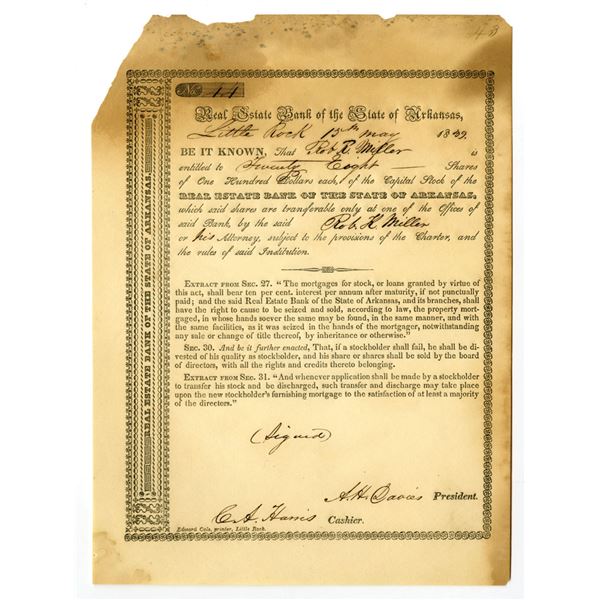 43
No. 11
Real Estate Bank of the State of Arkansas,
Little Rock 15th May 1839.
BE IT KNOWN, That Rob. R. Miller is
entitled to Twenty Eight Shares
of One Hundred Dollars each, of the Capital Stock of the
REAL ESTATE BANK OF THE STATE OF ARKANSAS,
which said shares are transferable only at one of the Offices of
said Bank, by the said Rob. R. Miller
or his Attorney, subject to the provisions of the Charter, and
the rules of said Institution.
EXTRACT FROM SEC. 27. "The mortgages for stock, or loans granted by virtue of
this act, shall bear ten per cent. interest per annum after maturity, if not punctually
paid; and the said Real Estate Bank of the State of Arkansas, and its branches, shall
have the right to cause to be seized and sold, according to law, the property mort-
gaged, in whose hands soever the same may be found, in the same manner, and with
the same facilities, as it was seized in the hands of the mortgager, notwithstanding
any sale or change of title thereof, by inheritance or otherwise."
SEC. 30. And be it further enacted, That, if a stockholder shall fail, he shall be di-
vested of his quality as stockholder, and his share or shares shall be sold by the board
of directors, with all the rights and credits thereto belonging.
EXTRACT FROM SEC. 31. "And whenever application shall be made by a stockholder
to transfer his stock and be discharged, such transfer and discharge may take place
upon the new stockholder's furnishing mortgage to the satisfaction of at least a majority
of the directors."
(Signed)
A. H. Davies President.
C. A. Harris Cashier.
Edward Cole, printer, Little Rock.
REAL ESTATE BANK OF THE STATE OF ARKANSAS.